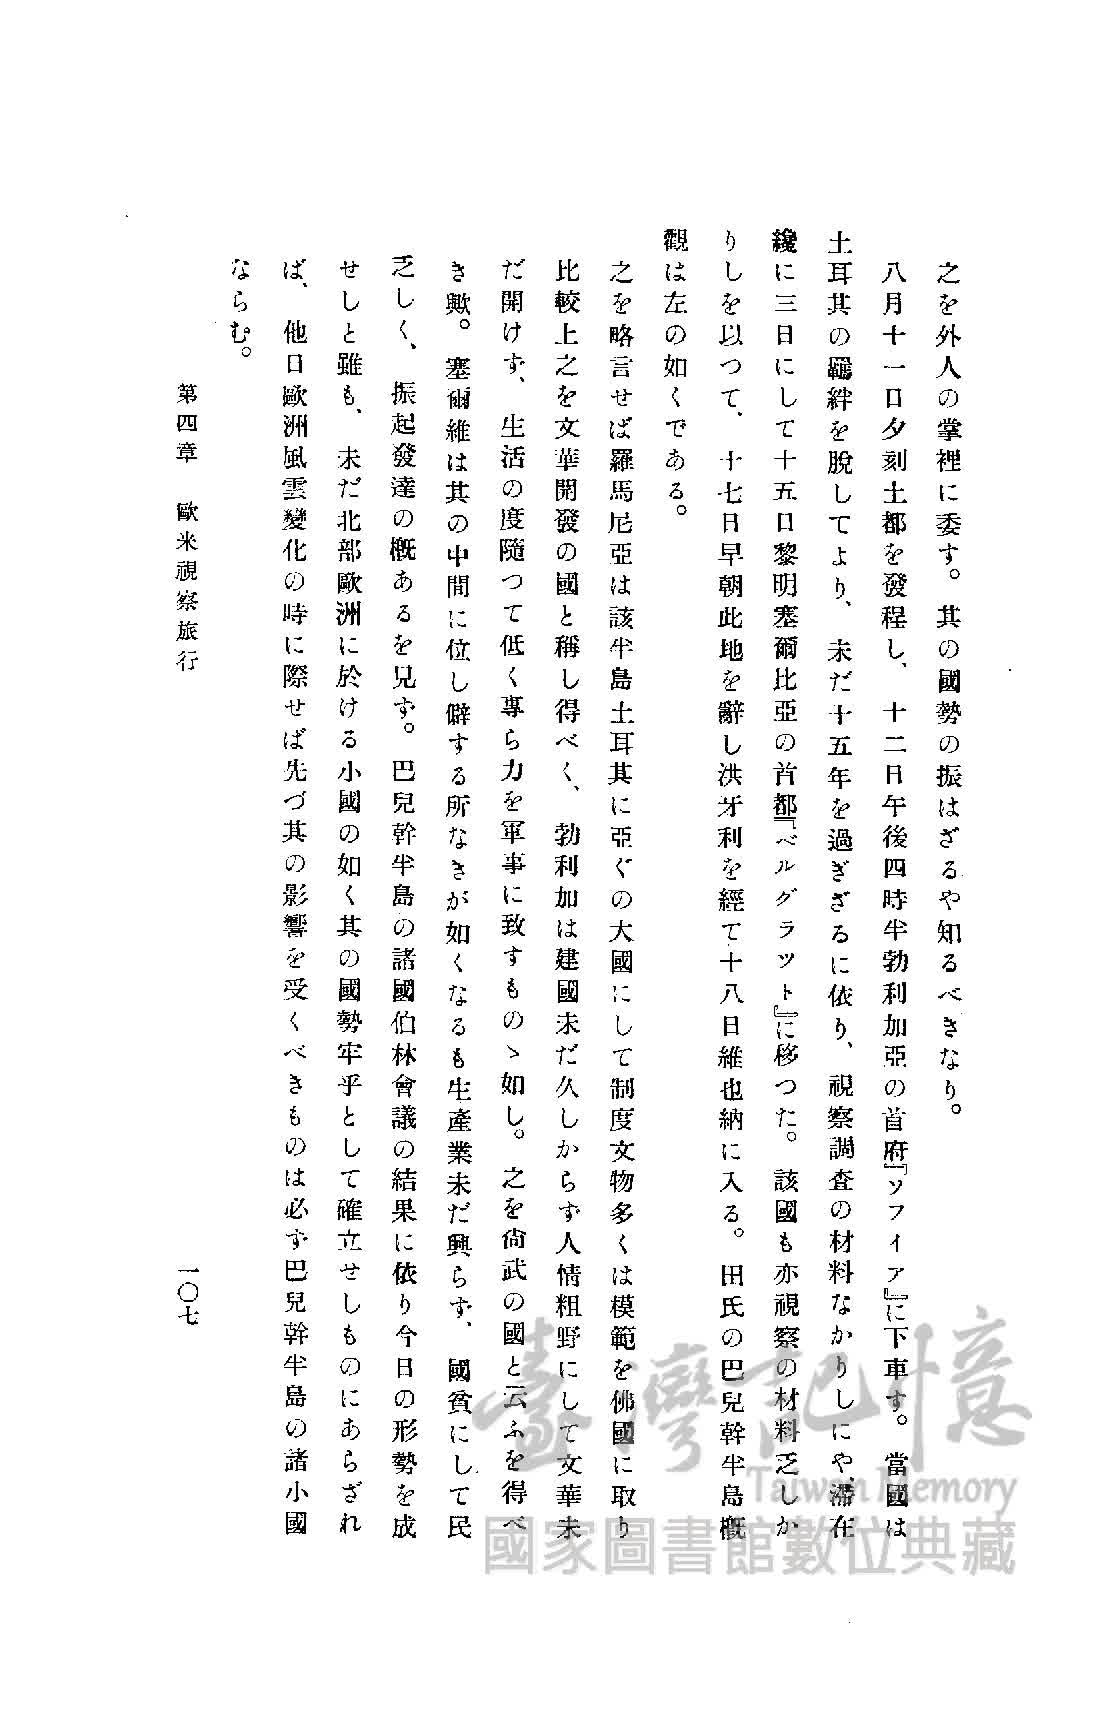 之を外人の掌裡に委す。其の國勢の振はざるや知るべきなり。
八月十一日夕刻土都を發程し、十二日午後四時半勃利加亞の首府『ソフィア』に下車す。當國は
土耳其の羈絆を脫してより、未だ十五年を過ぎざるに依り、視察調査の材料なかりしにや、滯在
纔に三日にして十五日黎明塞爾比亞の首都『ベルグラット』に移つた。該國も亦視察の材料乏しか
りしを以つて、十七日早朝此地を辭し洪牙利を經て十八日維也納に入る。田氏の巴兒幹半島槪
觀は左の如くである。
之を略言せば羅馬尼亞は該半島土耳其に亞ぐの大國にして制度文物多くは模範を佛國に取り
比較上之を文華開發の國と稱し得べく、勃利加は建國未だ久しからず人情粗野にして文華未
だ開けず、生活の度隨つて低く專ら力を軍事に致すものゝ如し。之を尙武の國と云ふを得べ
き歟。塞爾維は其の中間に位し僻する所なきが如くなるも生產業未だ興らず、國貧にして民
乏しく、振起發達の槪あるを見ず。巴兒幹半島の諸國伯林會議の結果に依り今日の形勢を成
せしと雖も、未だ北部歐洲に於ける小國の如く其の國勢牢乎として確立せしものにあらざれ
ば、他日歐洲風雲變化の時に際せば先づ其の影響を受くべきものは必ず巴兒幹半島の諸小國
ならむ。
第四章　歐米視察旅行
一〇七
臺灣記憶
Taiwan Memory
國家圖書館數位典藏